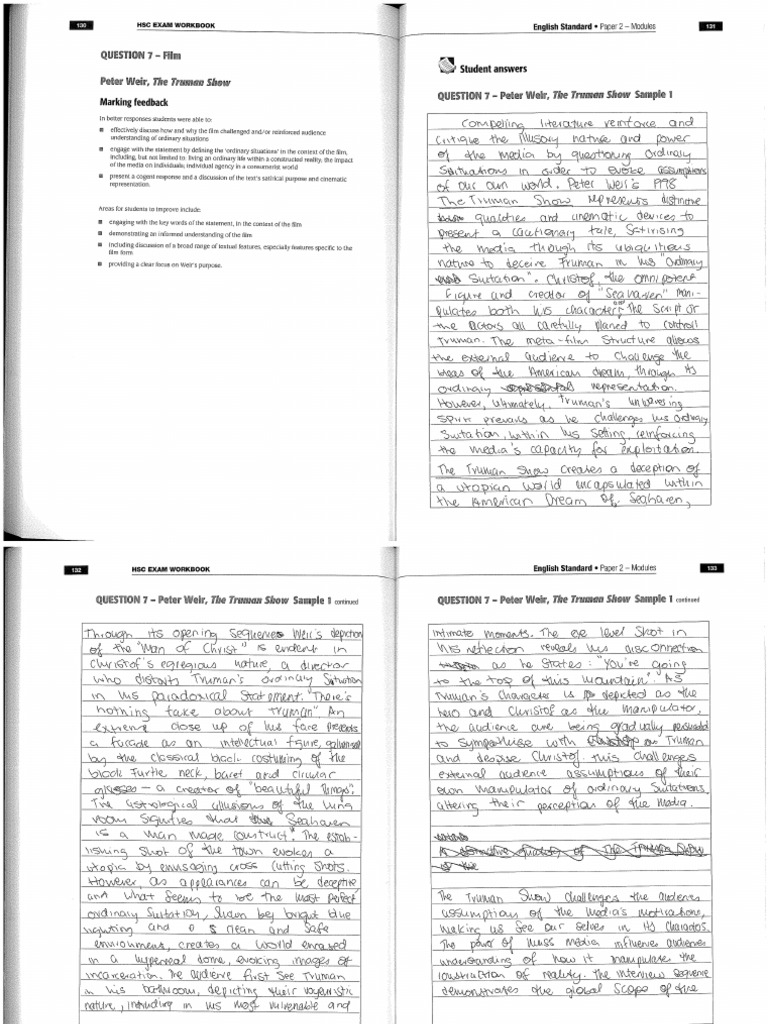 130 HSC EXAM WORKBOOK
QUESTION 7 – Film
Peter Weir, The Truman Show
Marking feedback
In better responses students were able to:
effectively discuss how and why the film challenged and/or reinforced audience
understanding of ordinary situations
engage with the statement by defining the 'ordinary situations' in the context of the film,
including, but not limited to: living an ordinary life within a constructed reality, the impact
of the media on individuals; individual agency in a consumerist world
present a cogent response and a discussion of the text's satirical purpose and cinematic
representation.
Areas for students to improve include:
engaging with the key words of the statement, in the context of the film
demonstrating an informed understanding of the film
including discussion of a broad range of textual features, especially features specific to the
film form
providing a clear focus on Weir's purpose.
English Standard • Paper 2 – Modules 131
Student answers
QUESTION 7 – Peter Weir, The Truman Show Sample 1
Compelling literature reinforce and
critique the illusory nature and power
of the media by questioning ordinary
Suituations in order to evoke assumptions
of our own world. Peter Weir's 1998
The Truman Show represents distinctive
qualities and cinematic devices to
present a cautionary tale, Satirising
the media through its ubiquitous
nature to deceive Truman in his "Ordinary
Suitation". Christof, the omnipotent
figure and creator of "Seahaven" mani-
pulates both his characters, the Script or
the actors all carefully planed to controll
Truman. The meta-film Structure allows
the external audience to challenge the
ideas of the American dream, through its
ordinary representation.
However, ultimately, Truman's unwavering
spirit prevails as he challenges his ordinary
Suitation, within his setting, reinforcing
the media's capacity for exploitation.
The Truman Show creates a deception of
a utopian world incapsulated within
the American Dream of Seahaven,
132 HSC EXAM WORKBOOK
QUESTION 7 – Peter Weir, The Truman Show Sample 1 continued
Through its opening Sequences Weir's depiction
of the "Man of Christ" is evident in
Christof's egregious nature, a director
who distorts Truman's ordinary Situation
in his paradoxical Statement "There's
nothing fake about Truman". An
extreme close up of his face presents
a facade as an intellectual figure,
by the classical black costuming of the
black turtle neck, baret and circular
glasses – a creator of "beautiful things".
The astrological allusions of the
room signifies that Seahaven
is a man made construct". The estab-
lishing shot of the town evokes a
utopia by envisaging cross cutting shots.
However, as appearances can be deceptive
and what seems to be the most pefect
ordinary Suitation, Shown bey bright blue
lighting and clean and safe
enviornment, creates a world encased
in a hyperreal dome, evoking images of
incarceration. The audience first See Truman
in his bathroom, depicting their voyeristic
nature, intruding in his most vulnerable and
English Standard • Paper 2 – Modules 133
QUESTION 7 – Peter Weir, The Truman Show Sample 1 continued
intimate moments. The eye level Shot in
his reflection reveals his disconnection
as he states: "You're going
to the top of this mountain". As
Truman's character is depicted as the
hero and Christof as the manipulator,
the audience are being gradually persuaded
to Sympathise with Truman
and despise Christof. this challenges
external audience assumptions of their
own manipulator of ordinary Suitations,
altering their perception of the Media.
The Truman Show
The Truman Show challenges the audience
assumptions of the media's motivations,
making us See our selves in its Characters.
The power of Mass media influences audiences
understanding of how it manipulate the
construction of reality. The interview sequence
demonstrates the global Scope of the